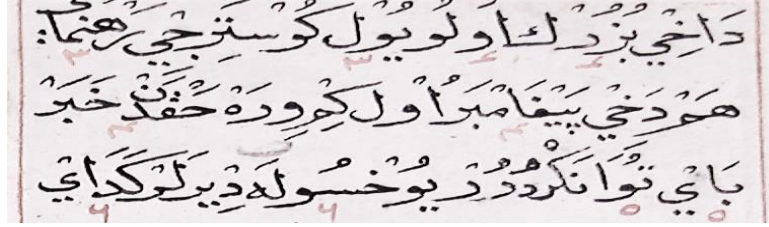 دَاخِي بُزُرْك اَولُو يُول كُوسْتَرِجِي رَهْنُمَا:
هَمْ دَخِي پَيْغَامْبَرْ اُول كِمْ وِرَهْ حَقْدَنْ خَبَرْ
بَاي تُوَانَكَرْ دُرُرْ يُوخْسُولَه دِيرلَرْ كَدَاي